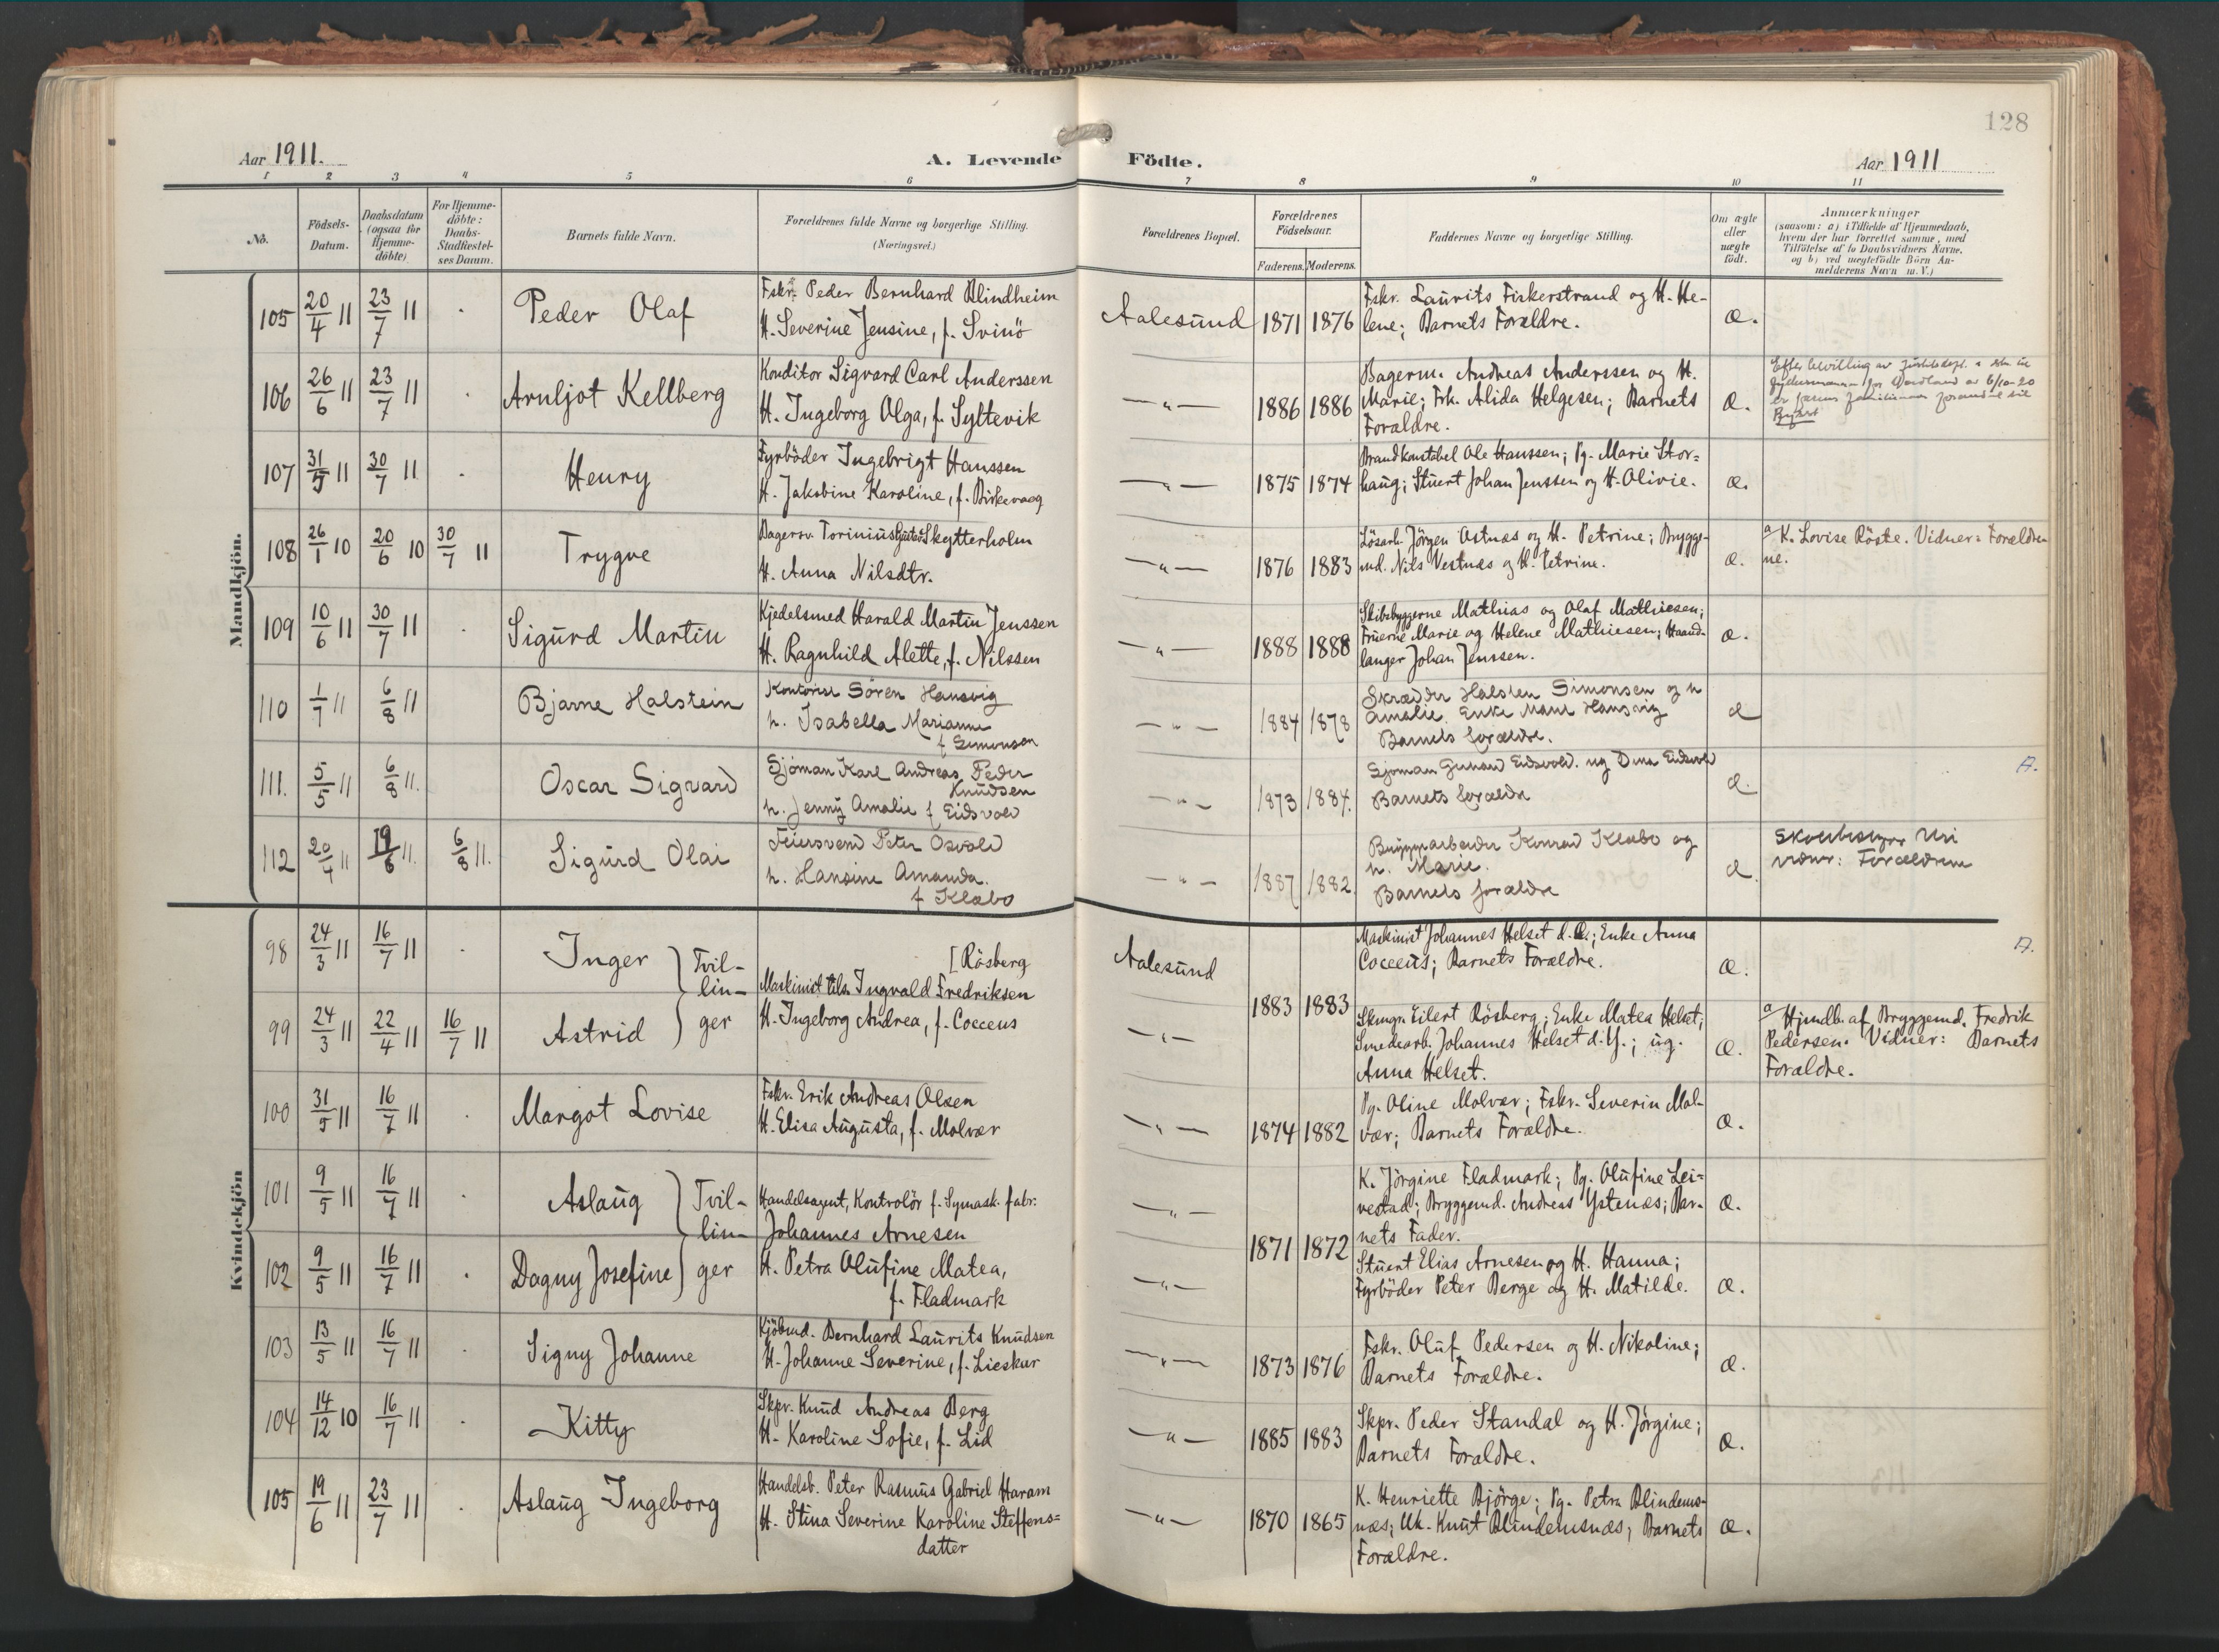 128
Aar 1911.
A. Levende Födte.
Aar 1911
1 2 3 4 5 6 7 8 9 10 11
No.
Födsels-
Datum.
Daabsdatum
(ogsaa for
Hjemme-
döbte)
For Hjemme-
döbte:
Daabs-
Stadfæstel-
ses Datum.
Barnets fulde Navn.
Forældrenes fulde Navne og borgerlige Stilling.
(Næringsvei.)
Forældrenes Bopæl.
Forældrenes
Födselsaar.
Faderens. Moderens.
Faddernes Navne og borgerlige Stilling.
Om ægte
eller
uægte
födt.
Anmærkninger
(saasom: a) i Tilfælde af Hjemmedaab,
hvem der har forrettet samme, med
Tilföielse af to Daabsvidners Navne,
og b) ved uægtefödte Börn An-
melderens Navn m.V.)
Mandkjön.
105 20/4 11 23/7 11 . Peder Olaf
Fskr. Peder Bernhard Blindheim
H. Severine Jensine, f. Svinö
Aalesund 1871 1876
Fskr. Laurits Fiskerstrand og H. He-
lene; Barnets Forældre.
Æ.
106 26/6 11 23/7 11 . Arnljot Kellberg
Konditor Sigvard Carl Anderssen
H. Ingeborg Olga, f. Syltevik
— " — 1886 1886
Bagerm. Andreas Anderssen og H.
Marie; Frk. Alida Helgesen; Barnets
Forældre.
Æ.
Efter bevilling av
av 6/10-20
er
107 31/5 11 30/7 11 . Henry
Fyrböder Ingebrigt Hanssen
H. Jakobine Karoline, f. Birkevaag
— " — 1875 1874
Brandkonstabel Ole Hanssen; Pg. Marie Stor-
haug; Stuert Johan Jenssen og H. Olivie.
Æ.
108 26/1 10 20/6 10 30/7 11 Trygve
Bagersv. Torinius Gustav Skytterholm
H. Anna Nilsdtr.
— " — 1876 1883
Lösarb. Jörgen Ostnæs og H. Petrine; Brygge-
md. Nils Vestnæs og H. Petrine.
Æ.
a K. Lovise Röste. Vidner: Forældre-
ne.
109 10/6 11 30/7 11 . Sigurd Martin
Kjedelsmed Harald Martin Jenssen
H. Ragnhild Alette, f. Nilssen
— " — 1888 1888
Skibsbyggerne Mathias og Olaf Mathiesen;
Fruerne Marie og Helene Mathiesen; Haand-
langer Johan Jenssen.
Æ.
110 1/7 11 6/8 11 Bjarne Halstein
Kontorist Sören Hansvig
h. Isabella Marianne
f Simonsen
— " — 1884 1878
Skrædder Halsten Simonsen og h
Amalie. Enke Hansvig
Barnets forældre.
æ
111. 5/5 11 6/8 11. Oscar Sigvard
Sjöman Karl Andreas Peder
Knudsen
h. Jenny Amalie f Eidsvold
— " — 1873 1884.
Sjöman Gunard Eidsvold. ug Dina Eidsvold
Barnets forældre
æ.
A.
112 20/4 11 19/6 11. 6/8 11. Sigurd Olai
Feiersvend Peter Osvold
h. Hansine Amanda.
f Klæbo
— " — 1887 1882.
Bryggearbeider Konrad Klæbo og
h. Marie.
Barnets forældre
æ.
Skolebestyrer Uri
vidner: Forældrene
Kvindekjön
98 24/3 11 16/7 11 . Inger
99 24/3 11 22/4 11 16/7 11 Astrid
Tvil-
lin-
ger
[Rösberg
Maskinist tils. Ingvald Fredriksen
H. Ingeborg Andrea, f. Cocceus
Aalesund
— " —
1883 1883
Maskinist Johannes Helset d. Æ.; Enke Anna
Cocceus; Barnets Forældre.
Æ.
A.
Skmgr. Eilert Rösberg; Enke Matea Helset;
Smedearb. Johannes Helset d. Y.; ug.
Anna Helset.
Æ.
a Hjmdb. af Bryggemd. Fredrik
Pedersen. Vidner: Barnets
Forældre.
100 31/5 11 16/7 11 . Margot Lovise
Fskr. Erik Andreas Olsen
H. Elisa Augusta, f. Molvær
— " — 1874 1882
Pg. Oline Molvær; Fskr. Severin Mol-
vær; Barnets Forældre.
Æ.
101 9/5 11 16/7 11 . Aslaug
102 9/5 11 16/7 11 . Dagny Josefine
Tvil-
lin-
ger
Handelsagent, Kontrolör f. Symask. fabr:
Johannes Arnesen
H. Petra Olufine Matea,
f. Fladmark
— " —
— " —
1871 1872
K. Jörgine Fladmark; Pg. Olufine Lei-
vestad; Bryggemd. Andreas Ystenæs; Bar-
nets Fader.
Æ.
Stuert Elias Arnesen og H. Hanna;
Fyrböder Peter Berge og H. Matilde.
Æ.
103 13/5 11 16/7 11 . Signy Johanne
Kjöbmd. Bernhard Laurits Knudsen
H. Johanne Severine, f. Lieskar
— " — 1873 1876
Fskr. Oluf Pedersen og H. Nikoline;
Barnets Forældre.
Æ.
104 14/12 10 16/7 11 . Kitty
Skpr. Knud Andreas Berg
H. Karoline Sofie, f. Lid
— " — 1885 1883
Skpr. Peder Standal og H. Jörgine;
Barnets Forældre.
Æ.
105 19/6 11 23/7 11 . Aslaug Ingeborg
Handelsb. Peter Rasmus Gabriel Haram
H. Stina Severine Karoline Steffens=
datter
— " — 1870 1865
K. Henriette Bjørge; Pg. Petra Blindems-
næs; Uk. Knut Blindemsnæs; Barnets
Forældre.
Æ.